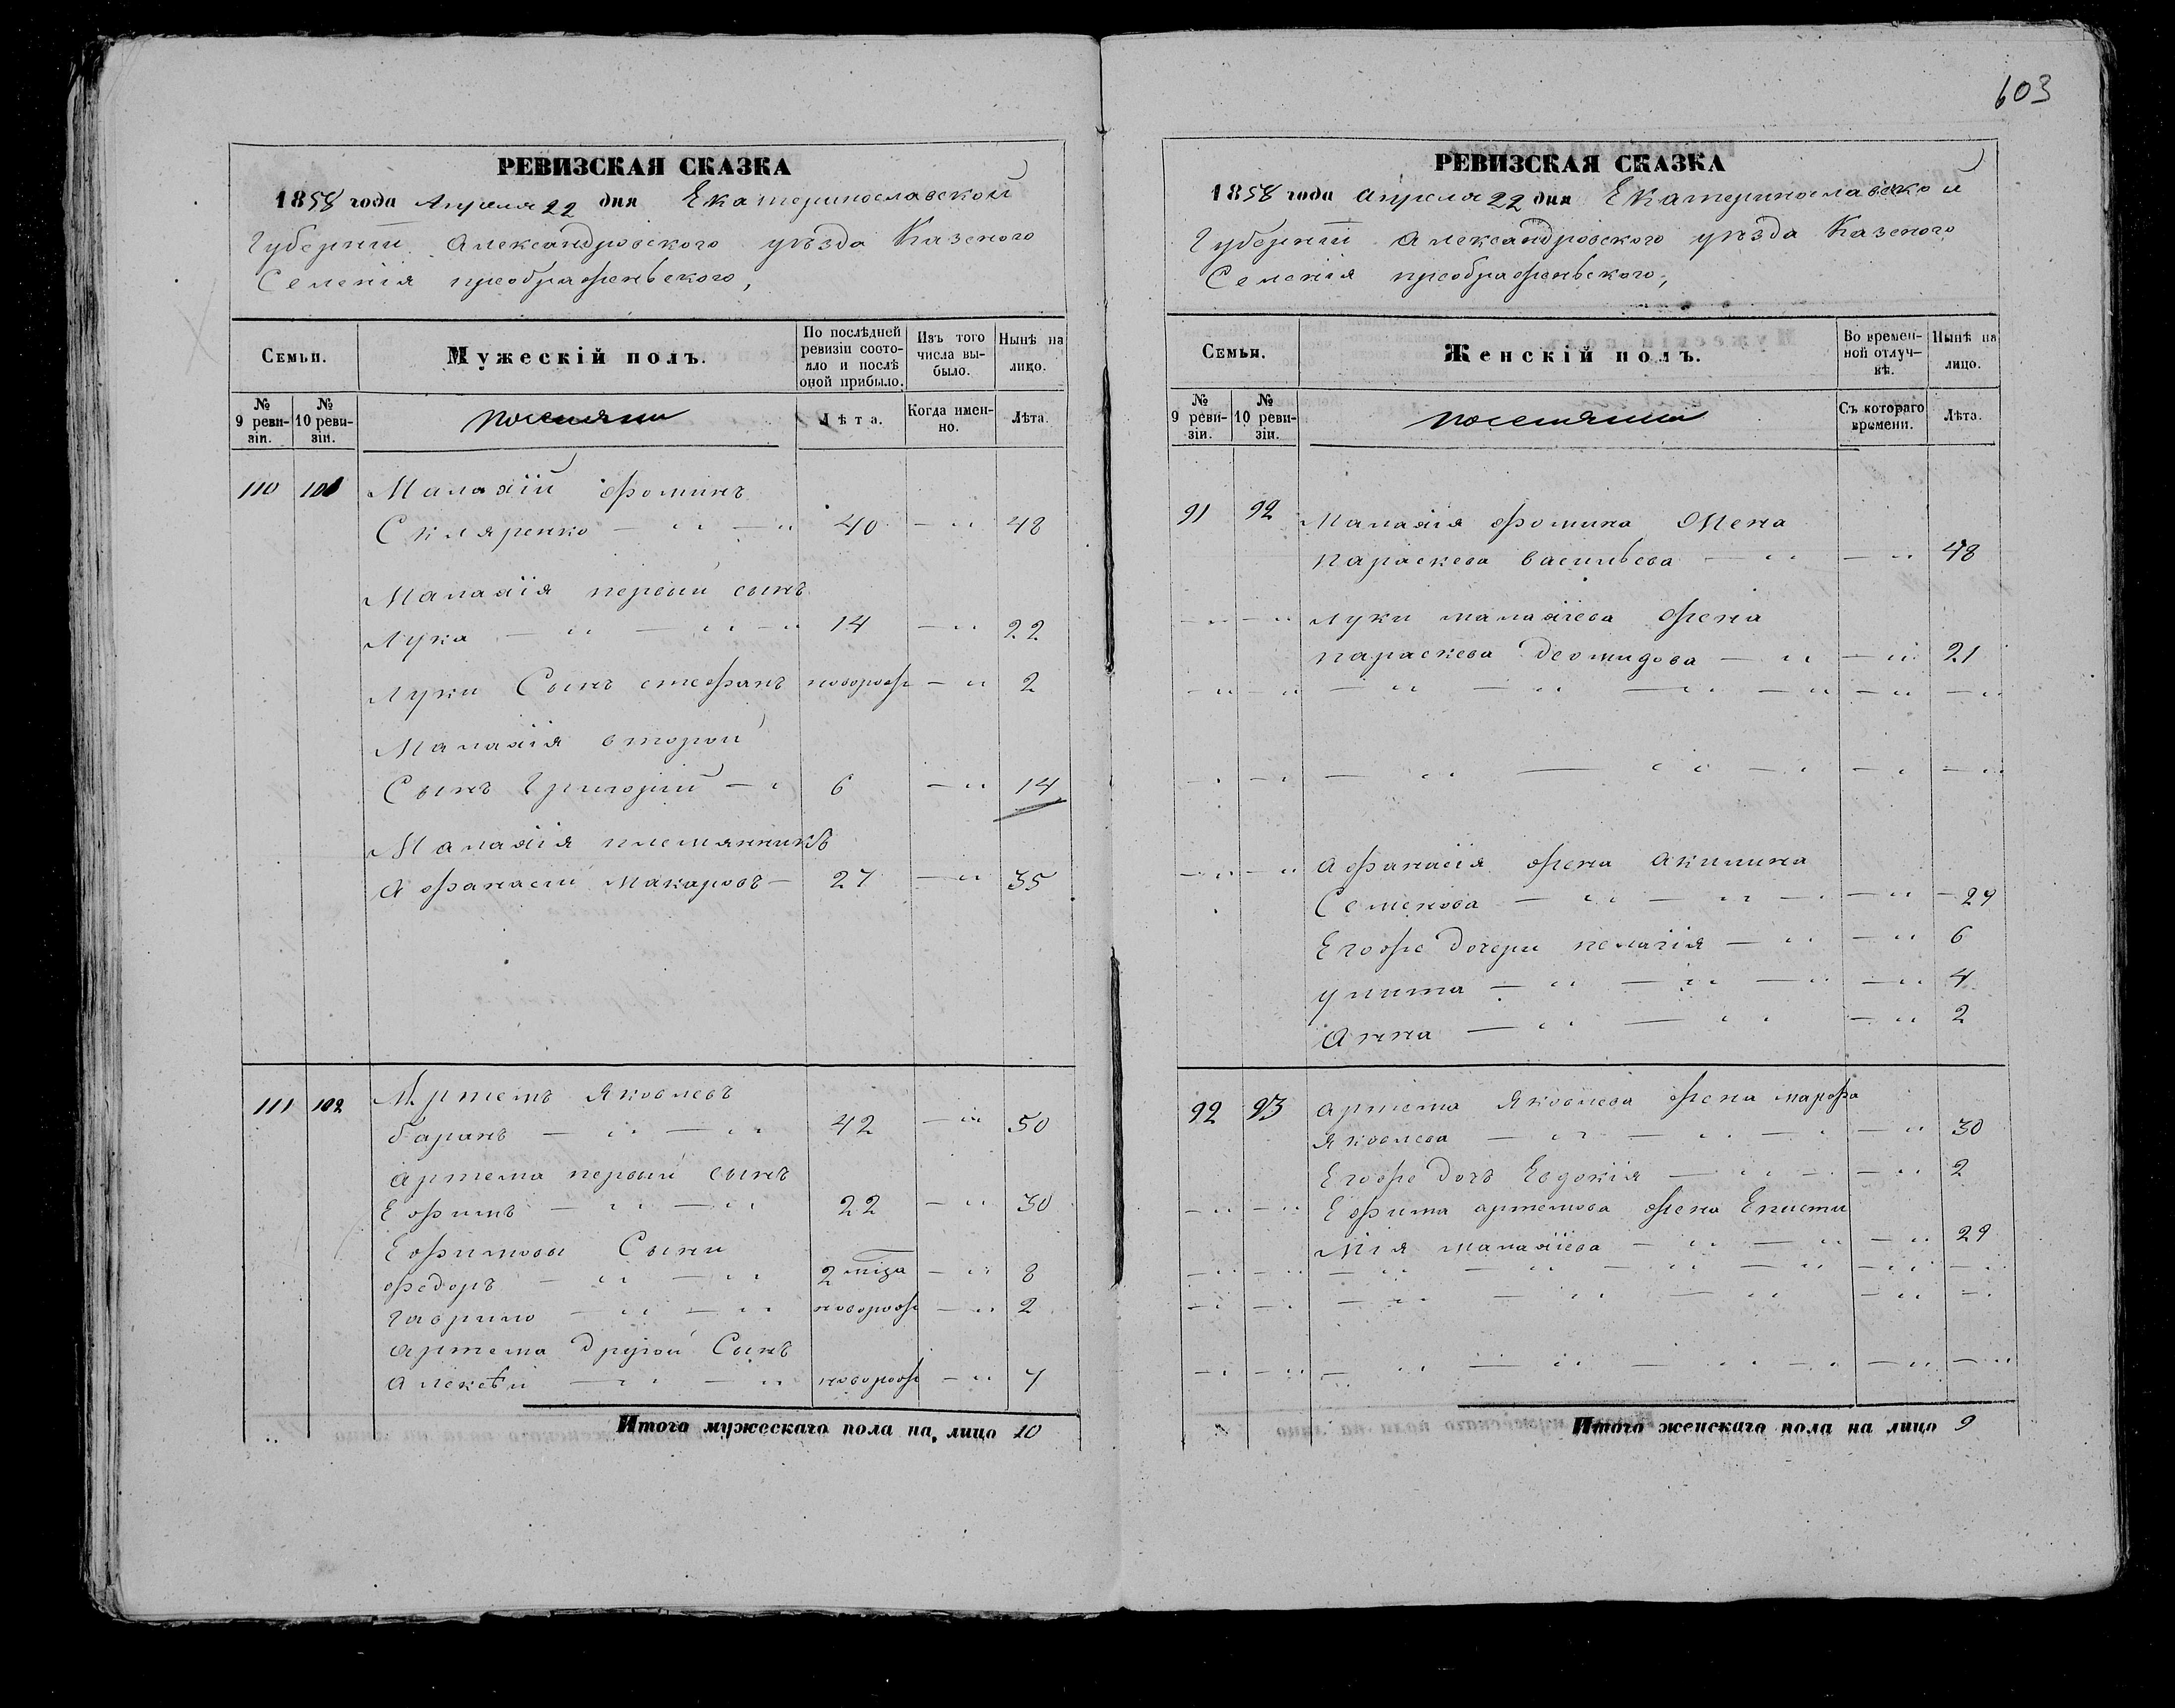 603
РЕВИЗСКАЯ СКАЗКА
1858 года Апреля 22 дня Екатеринославской
Губерніи Александровского уѣзда Казеного
Селенія преображеньского,
Семьи.
Мужескій полъ.
По послѣдней ревизіи состояло и послѣ оной прибыло.
Изъ того числа выбыло.
Нынѣ на лицо.
№ 9 ревизіи.
№ 10 ревизіи.
поселяни
Лѣта.
Когда именно.
Лѣта.
110 101 Малахій Фоминъ
Скляренко — " — " 40 — " 48
Малахія первый сынъ
Лука — " — " — " 14 — " 22
Луки Сынъ стефанъ новорож — " 2
Малахія второй
Сынъ Григорій — " 6 — " 14
Малахія племянникъ
Афанасій Макаровъ — 27 — " 35
111 102 Артемъ Яковлевъ
баранъ — " — " 42 — " 50
артема первый сынъ
Ефимъ — " — " 22 — " 30
Ефимовы Сыни
Федоръ — " — " 2 — " 8
гаврило — " — " новорож — " 2
артема другой Сынъ
алексѣй — " — " новорож — " 7
Итого мужескаго пола на лицо 10
РЕВИЗСКАЯ СКАЗКА
1858 года апреля 22 дня Екатеринославской
Губерніи Александровского уѣзда Казеного
Селенія преображеньского,
Семьи.
Женскій полъ.
Во временной отлучкѣ.
Нынѣ на лицо.
№ 9 ревизіи.
№ 10 ревизіи.
поселянки
Съ котораго времени.
Лѣта.
91 92 Малахія Фомина жена
параскева васильева — " — " 48
— " — " луки малахіева жена
параскева деомидова — " — " 21
— " — " — " — " — " — " — " — "
— " — " — " — " — " — " — "
— " — " Афанасія жена акилина
Семенова — " — " — " — " — 29
Егоже дочери пелагія — " — " 6
улита — " — " — " — " 4
анна — " — " — " 2
92 93 артема Яковлева жена марфа
Яковлева — " — " — " — " 30
Егоже дочь Евдокія — " — " — " 2
— " — " Ефима артемова жена Еписти
мія малахіева — " — " — " 29
— " — " — " — " — " — " — " — "
— " — " — " — " — " — " — "
— " — " — " — " — " — " — " — "
Итого женскаго пола на лицо 9